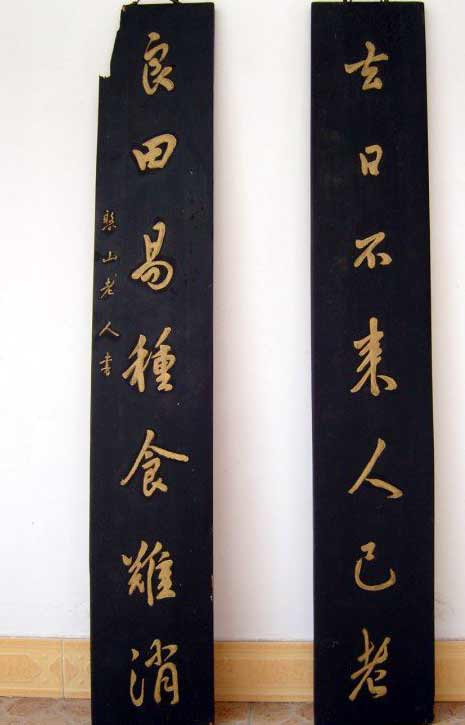 去日不来人已老
良田易種食難消
憨山老人書